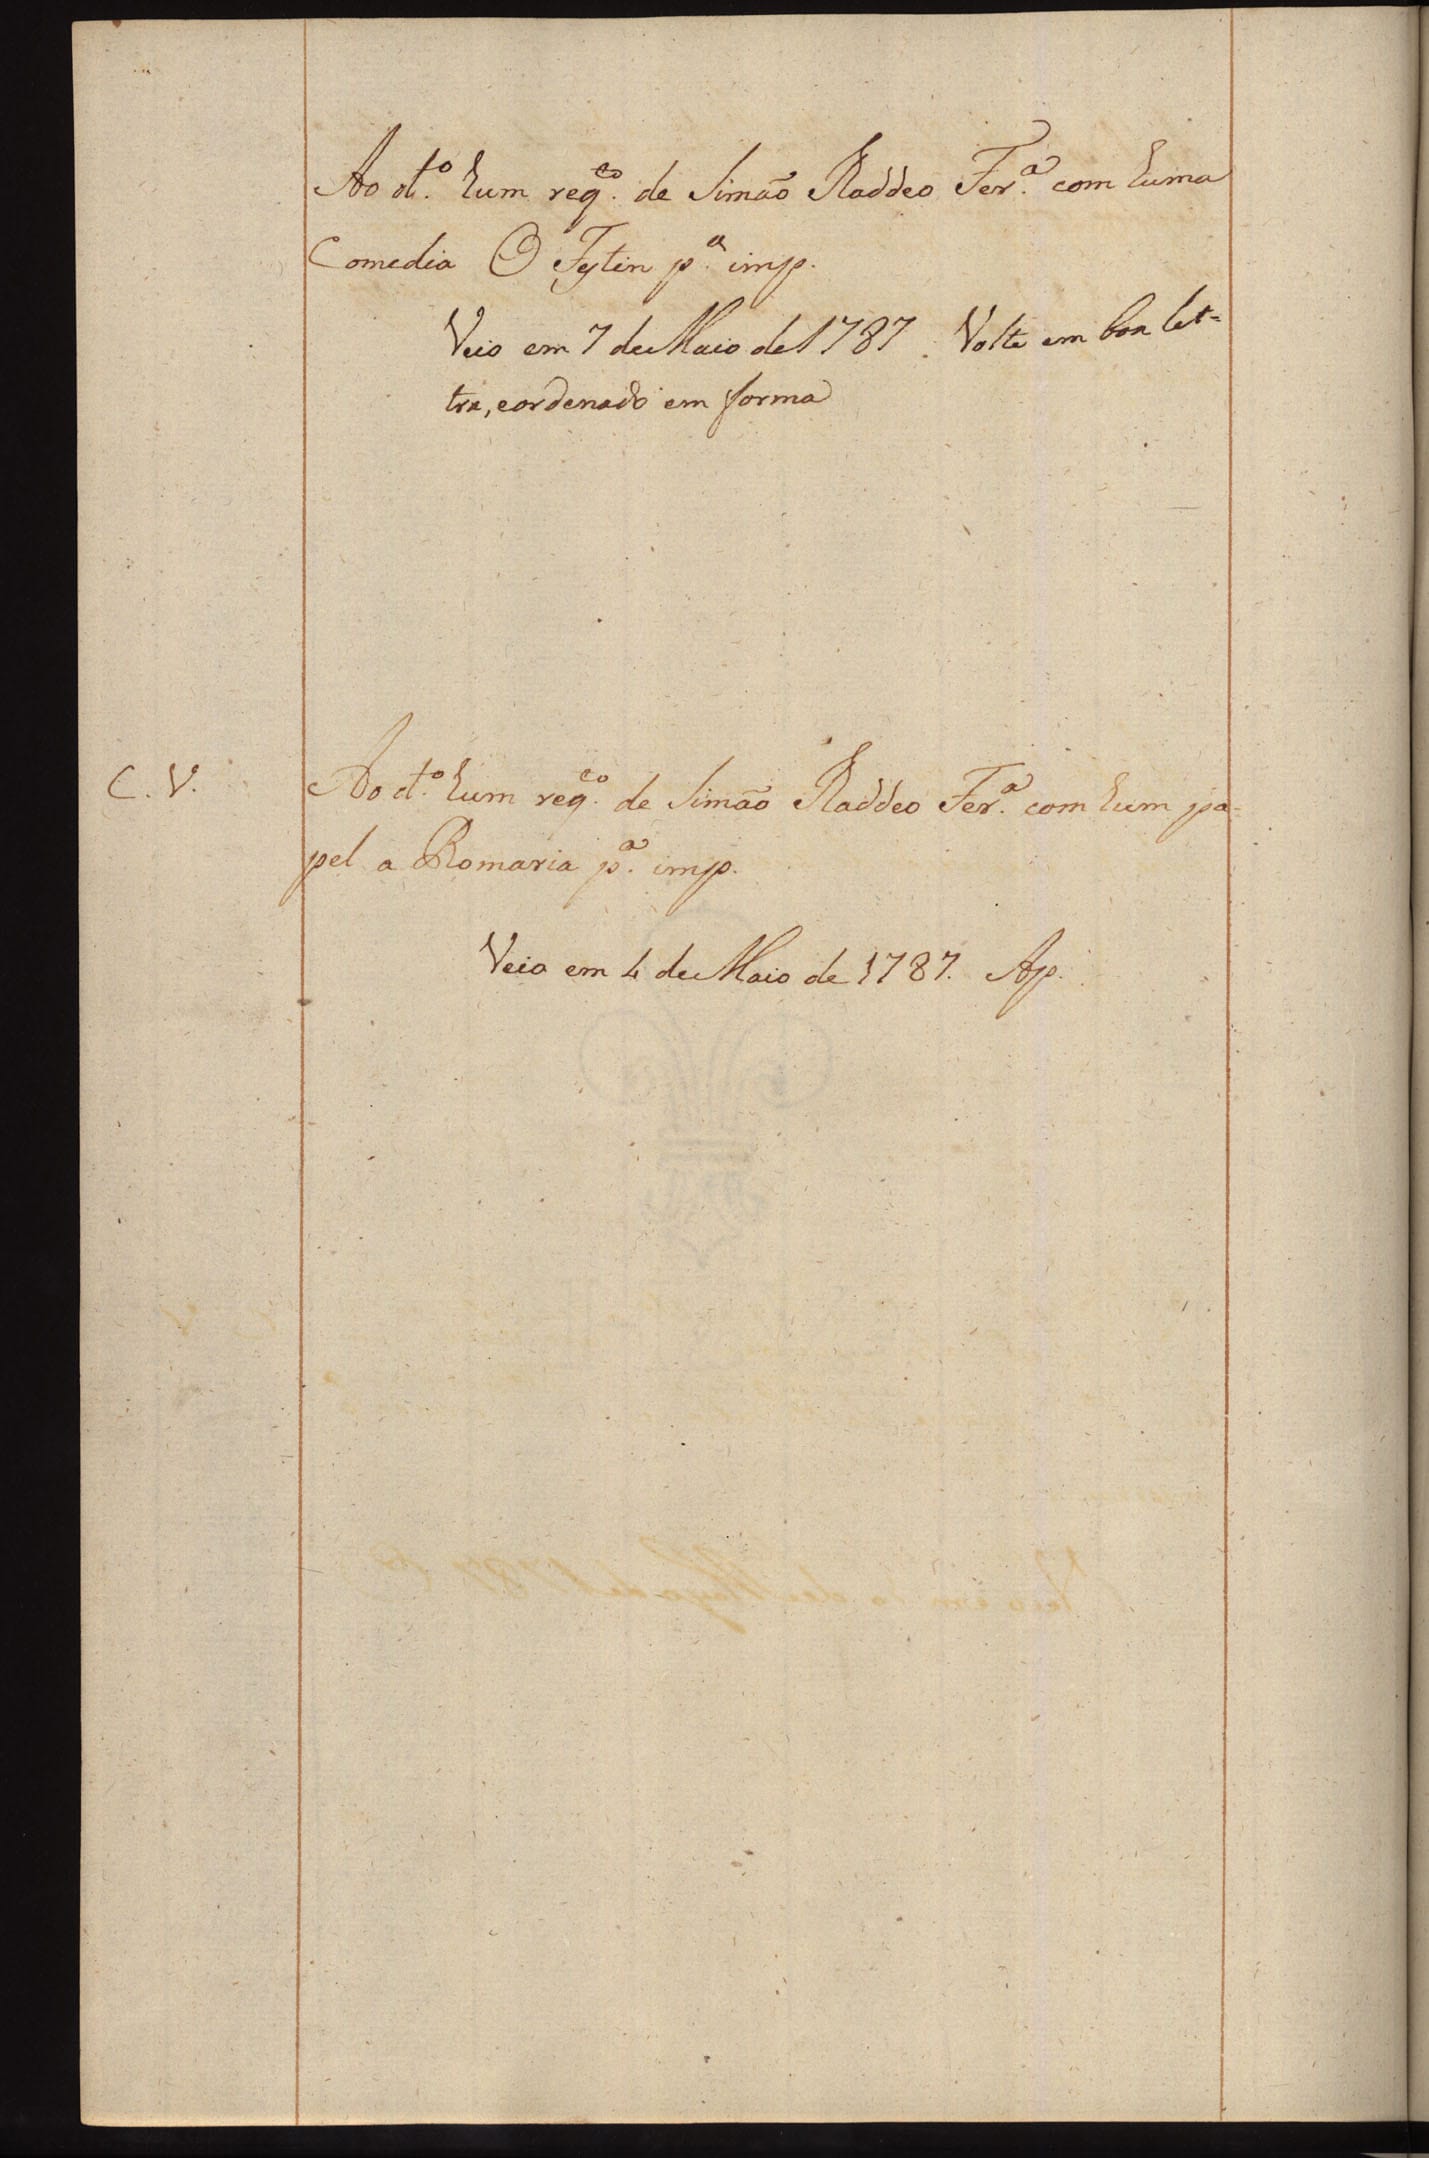 Ao d.to hum req.co de Simão Raddeo Fer.a com huma
Comedia O Fytin p.a imp.
Veio em 7 de Maio de 1787. Volte em boa let=
tra, e ordenado em forma
C. V.
Ao d.to hum req.co de Simão Raddeo Fer.a com hum pa=
pel a Romaria p.a imp.
Veio em 4 de Maio de 1787. Ap.